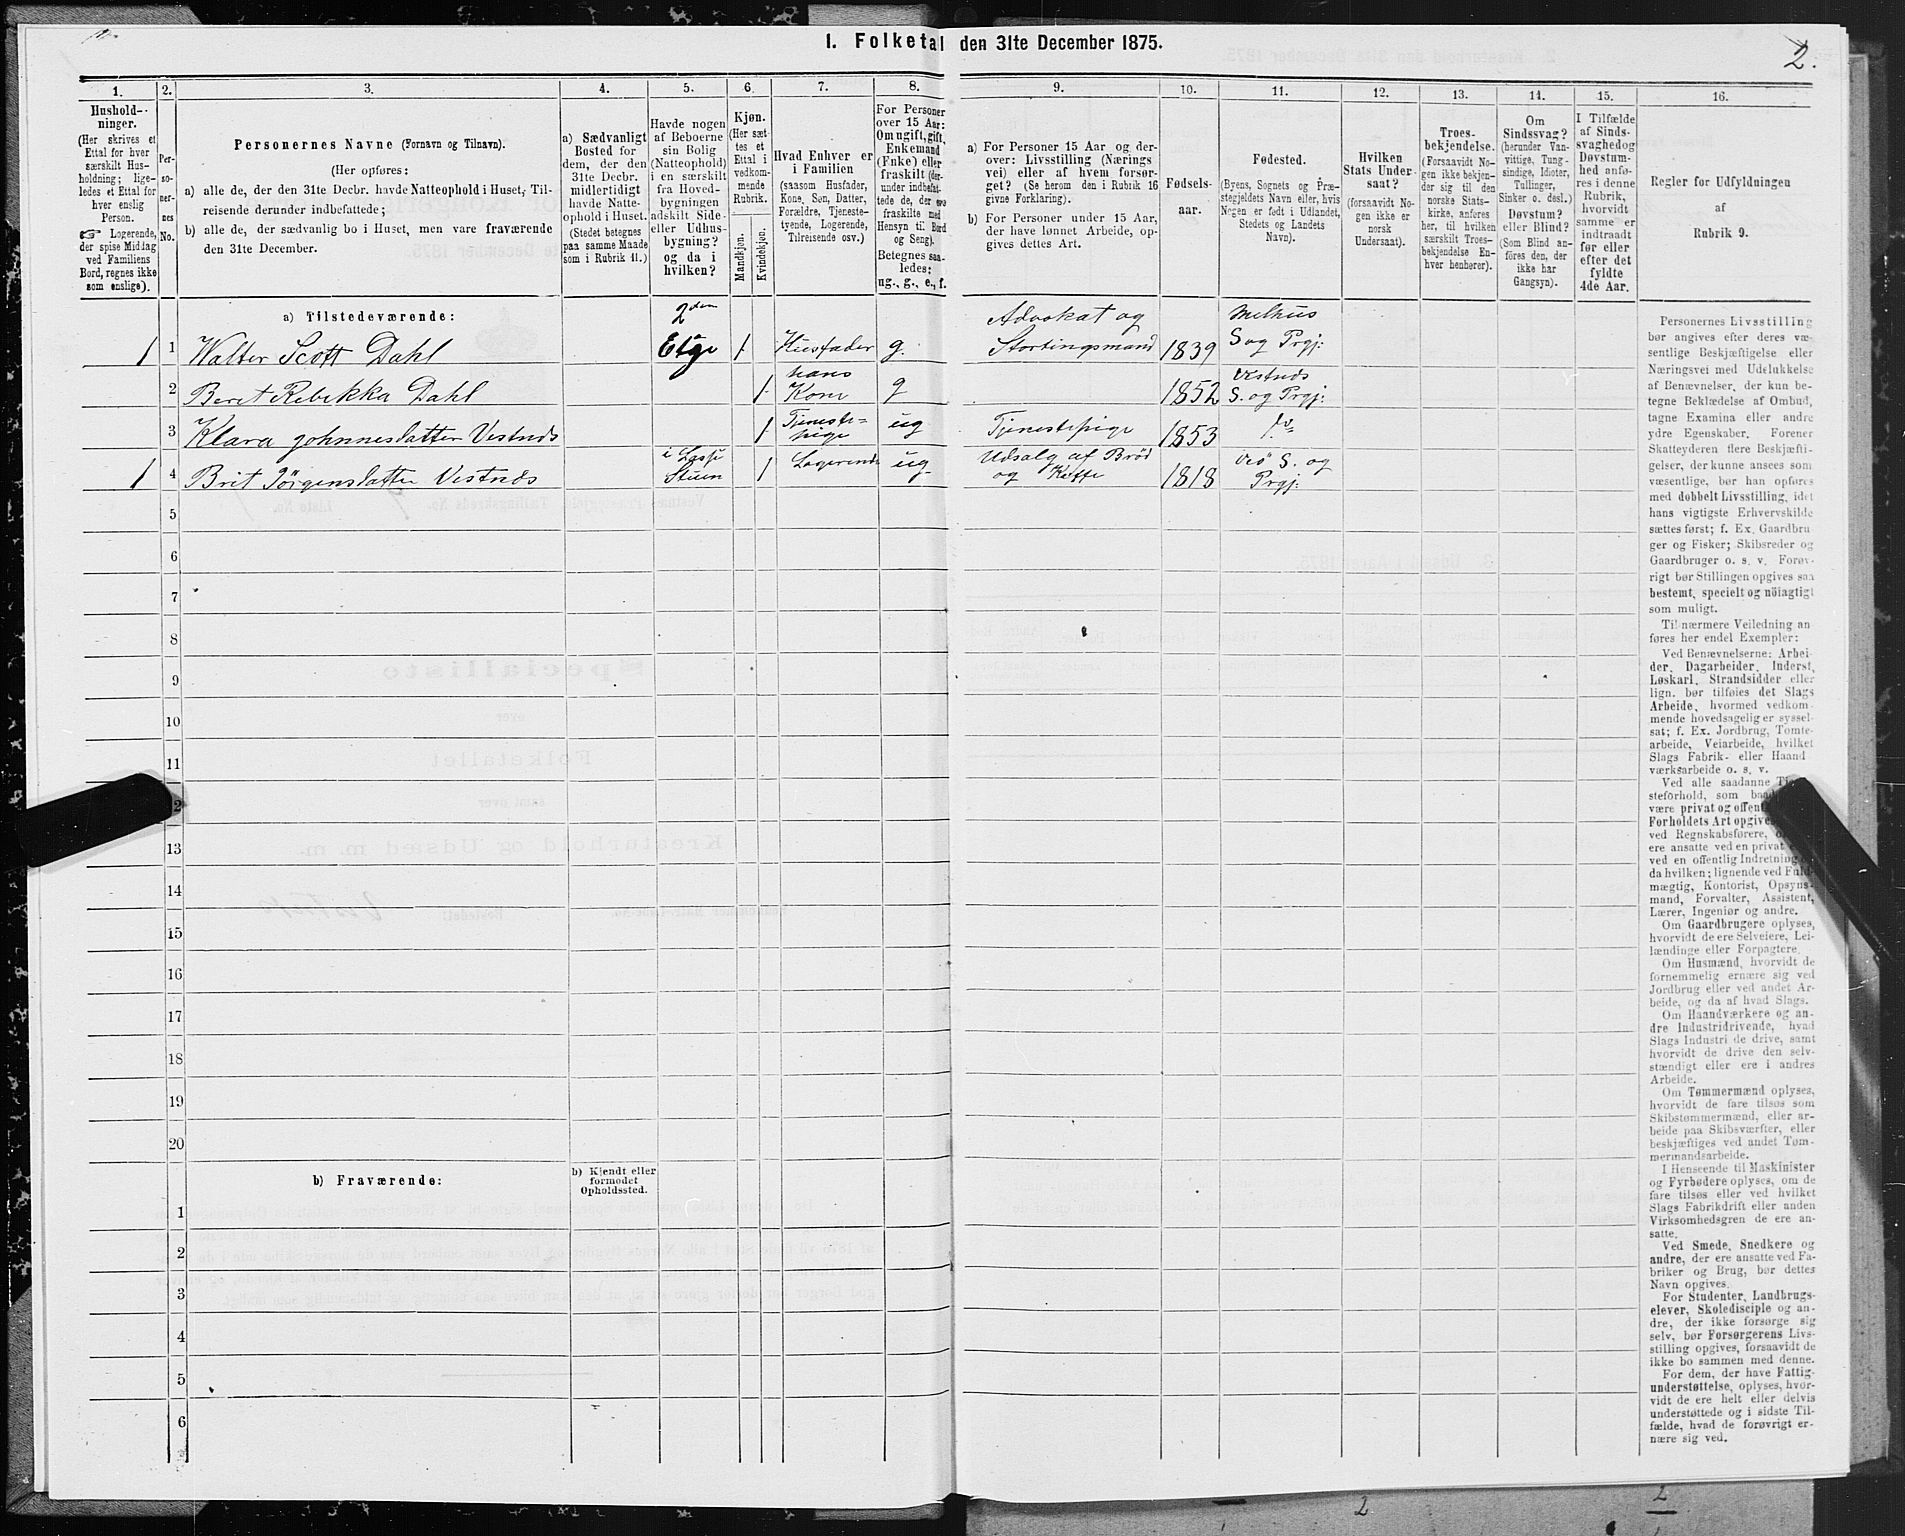 1. Folketal den 31te December 1875.
2.
1.
2.
3.
4.
5.
6.
7.
8.
9.
10.
11.
12.
13.
14.
15.
16.
Hushold-
ninger.
(Her skrives et
Ettal for hver
særskilt Hus-
holdning; lige-
ledes et Ettal for
hver enslig
Person.
☞ Logerende,
der spise Middag
ved Familiens
Bord, regnes ikke
som enslige).
Per-
so-
ner-
nes
No.
Personernes Navne (Fornavn og Tilnavn).
(Her opføres:
a) alle de, der den 31te Decbr. havde Natteophold i Huset, Til-
reisende derunder indbefattede;
b) alle de, der sædvanlig bo i Huset, men vare fraværende
den 31te December.
a) Sædvanligt
Bosted for
dem, der den
31te Decbr.
midlertidigt
havde Natte-
ophold i Huset.
(Stedet betegnes
paa samme Maade
som i Rubrik 11.)
Havde nogen
af Beboerne
sin Bolig
(Natteophold)
i en særskilt
fra Hoved-
bygningen
adskilt Side-
eller Udhus-
bygning?
og da i
hvilken?
Kjøn.
(Her sæt-
tes et
Ettal i
vedkom-
mende
Rubrik.
Mandkjøn.
Kvindekjøn.
Hvad Enhver er
i Familien
(saasom Husfader,
Kone, Søn, Datter,
Forældre, Tjeneste-
tyende, Logerende,
Tilreisende osv.)
For Personer
over 15 Aar:
Om ugift, gift,
Enkemand
(Enke) eller
fraskilt (der-
under indbefat-
tede de, der ere
fraskilte med
Hensyn til Bord
og Seng).
Betegnes saa-
ledes:
ug., g., e., f.
a) For Personer 15 Aar og der-
over: Livsstilling (Nærings
vei) eller af hvem forsør-
get? (Se herom den i Rubrik 16
givne Forklaring).
b) For Personer under 15 Aar,
der have lønnet Arbeide, op-
gives dettes Art.
Fødsels-
aar.
Fødested.
(Byens, Sognets og Præ-
stegjeldets Navn eller, hvis
Nogen er født i Udlandet,
Stedets og Landets
Navn).
Hvilken
Stats Under-
saat?
(forsaavidt No-
gen ikke er
norsk
Undersaat).
Troes-
bekjendelse.
(Forsaavidt No-
gen ikke bekjen-
der sig til den
norske Stats-
kirke, anføres
her, til hvilken
særskilt Troes-
bekjendelse En-
hver henhører).
Om
Sindssvag?
(herunder Van-
vittige, Tung-
sindige, Idioter,
Tullinger,
Sinker o. desl.)
Døvstum?
eller Blind?
(Som Blind an-
føres den, der
ikke har
Gangsyn).
I Tilfælde
af Sinds-
svaghed og
Døvstum-
hed anfø-
res i denne
Rubrik,
hvorvidt
samme er
indtraadt
før eller
efter det
fyldte
4de Aar.
Regler for Udfyldningen
af
Rubrik 9.
a) Tilstedeværende:
2den
Advokat og
Melhus
1 1 Walter Scott Dahl Etge 1 Husfader g. Stortingsmand 1839 S og Prgj:
hans
Vestnds
2 Beret Rebekka Dahl 1 Kone g 1852 S. og Prgj:
Tjeneste-
3 Klara Johnnesdatter Vestnds 1 pige ug Tjenestepige 1853 do
Udsalg af Brød
1 4 Brit Jørgensdatter Vestnds Stuen 1 Logerende ug og Kaffe 1818 Veø S. og
Prgj:
5
6
7
8
9
10
11
2
13
14
15
16
17
18
19
20
b) Fraværende:
b) Kjendt eller
formodet
Opholdssted.
1
2
3
4
5
6
Personernes Livsstilling
bør angives efter deres væ-
sentlige Beskjæftigelse eller
Næringsvei med Udelukkelse
af Benævnelser, der kun be-
tegne Beklædelse af Ombud,
tagne Examina eller andre
ydre Egenskaber. Forener
Skatteyderen flere Beskjæfti-
gelser, der kunne ansees som
væsentlige, bør han opføres
med dobbelt Livsstilling, idet
hans vigtigste Erhvervskilde
sættes først; f. Ex. Gaardbru
ger og Fisker; Skibsreder og
Gaardbruger o. s. v. Forøv-
rigt bør Stillingen opgives saa
bestemt, specielt og nöiagtigt
som muligt.
Til nærmere Veiledning an
føres her endel Exempler:
Ved Benævnelserne: Arbei-
der, Dagarbeider, Inderst,
Løskarl, Strandsidder eller
lign. bør tilføies det Slags
Arbeide, hvormed vedkom-
mende hovedsagelig er syssel-
sat; f. Ex. Jordbrug, Tomte-
arbeide, Veiarbeide, hvilket
Slags Fabrik- eller Haand
værksarbeide o. s. v.
Ved alle saadanne
steforhold, som
være privat og
Forholdets Art opgives,
ved Regnskabsførere,
ere ansatte ved en privat
ved en offentlig Indretning
da hvilken; lignende ved Fuld-
mægtig, Kontorist, Opsyns-
mand, Forvalter, Assistent,
Lærer, Ingeniør og andre.
Om Gaardbrugere oplyses,
hvorvidt de ere Selveiere, Lei-
lændinge eller Forpagtere.
Om Husmænd, hvorvidt de
fornemmelig ernære sig ved
Jordbrug eller ved andet Ar-
beide, og da af hvad Slags.
Om Haandværkere og an-
dre Industridrivende, hvad
Slags Industri de drive, samt
hvorvidt de drive den selv-
stændigt eller ere i andres
Arbeide.
Om Tømmermænd oplyses,
hvorvidt de fare tilsøs som
Skibstømmermænd, eller ar-
beide paa Skibsværfter, eller
beskjæftiges ved andet Tøm-
mermandsarbeide.
I Henseende til Maskinister
og Fyrbødere oplyses, om de
fare tilsøs eller ved hvilket
Slags Fabrikdrift eller anden
Virksomhedsgren de ere an-
satte.
Ved Smede, Snedkere og
andre, der ere ansatte ved Fa-
briker og Brug, bør dettes
Navn opgives.
For Studenter, Landbrugs-
elever, Skoledisciple og an-
dre, der ikke forsørge sig
selv, bør Forsørgerens Livs-
stilling opgives, forsaavidt de
ikke bo sammen med denne.
For dem, der have Fattig-
understøttelse, oplyses, hvor-
vidt de ere helt eller delvis
understøttede og i sidste Til-
fælde, hvad de forøvrigt er-
nære sig ved.
2
2